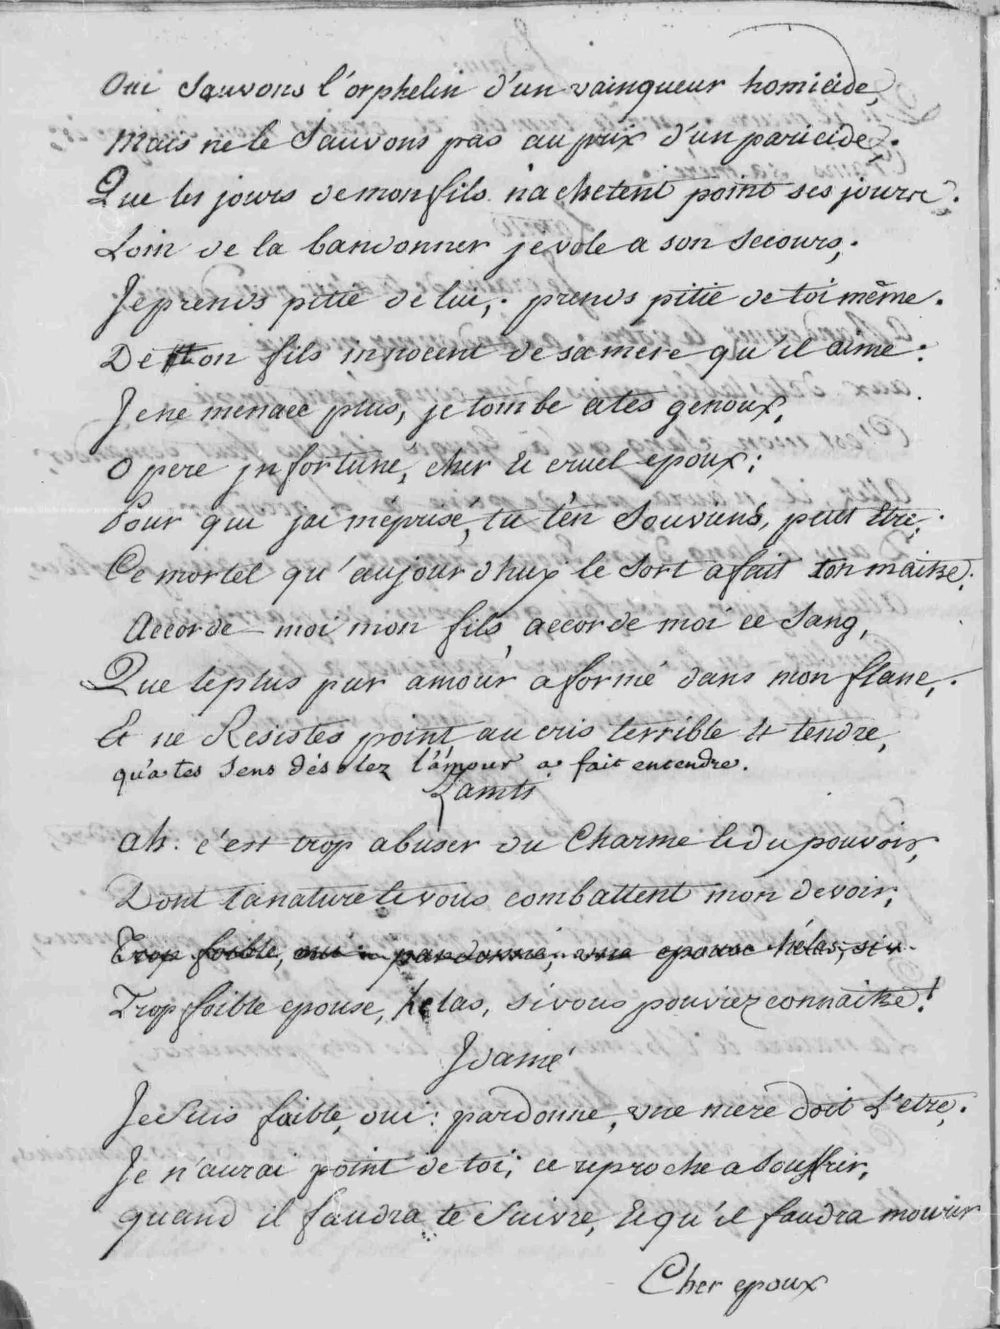 Oui Sauvons l'orphelin d'un vainqueur homicide,
Mais ne le Sauvons pas au prix d'un paricide.
Que les jours de mon fils n'achetent point ses jours.
Loin de la bandonner je vole a son Secours,
Je prends pitié de lui, prends pitié de toi même.
De ton fils innocent de sa mere qu'il aime.
Je ne menace plus, je tombe a tes genoux,
O pere jnfortune, cher & cruel epoux;
Pour qui j'ai meprisé, tu t'en Souviens, peut être,
Ce mortel qu'aujourdhuy le Sort a fait ton maitre.
Accorde-moi mon fils, accorde moi ce Sang,
Que le plus pur amour a formé dans mon flanc,
Et ne Resistes point au cris terrible & tendre,
qu'a tes Sens désolez l'amour a fait entendre.
Zamti
ah. c'est trop abuser du Charme & du pouvoir,
Dont la nature & vous combattent mon devoir,
Trop foible, oui pardonné, une epouse hélas, si v.
Trop foible epouse, helas, si vous pouviez connaitre!
Jdamé
Je Suis faible, oui: pardonne, une mere doit L'etre,
Je n'aurai point de toi, ce reproche a Souffrir,
quand il faudra te Suivre, & qu'il faudra mourir
Cher epoux